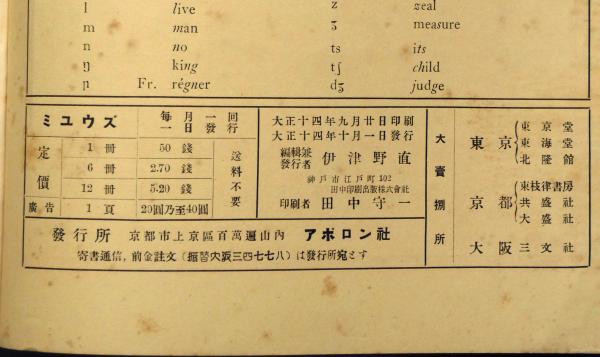 l live z zeal
m man ʒ measure
n no ts its
ŋ king tʃ child
ɲ Fr. régner dʒ judge
ミユウズ 毎月一回一日發行
定價 1 冊 50 錢 送料不要
6 冊 2.70 錢
12 冊 5.20 錢
廣告 1 頁 20圓乃至40圓
大正十四年九月廿日印刷
大正十四年十月一日發行
編輯兼發行者 伊津野直
神戸市江戸町 102
田中印刷出版株式會社
印刷者 田中守一
大賣捌所
東京 東京堂
東海堂
北隆館
京都 東枝律書房
共盛社
大盛社
大阪 三文社
發行所 京都市上京區百萬遍山內 アポロン社
寄書通信,前金註文(振替大阪三四七七八)は發行所宛とす